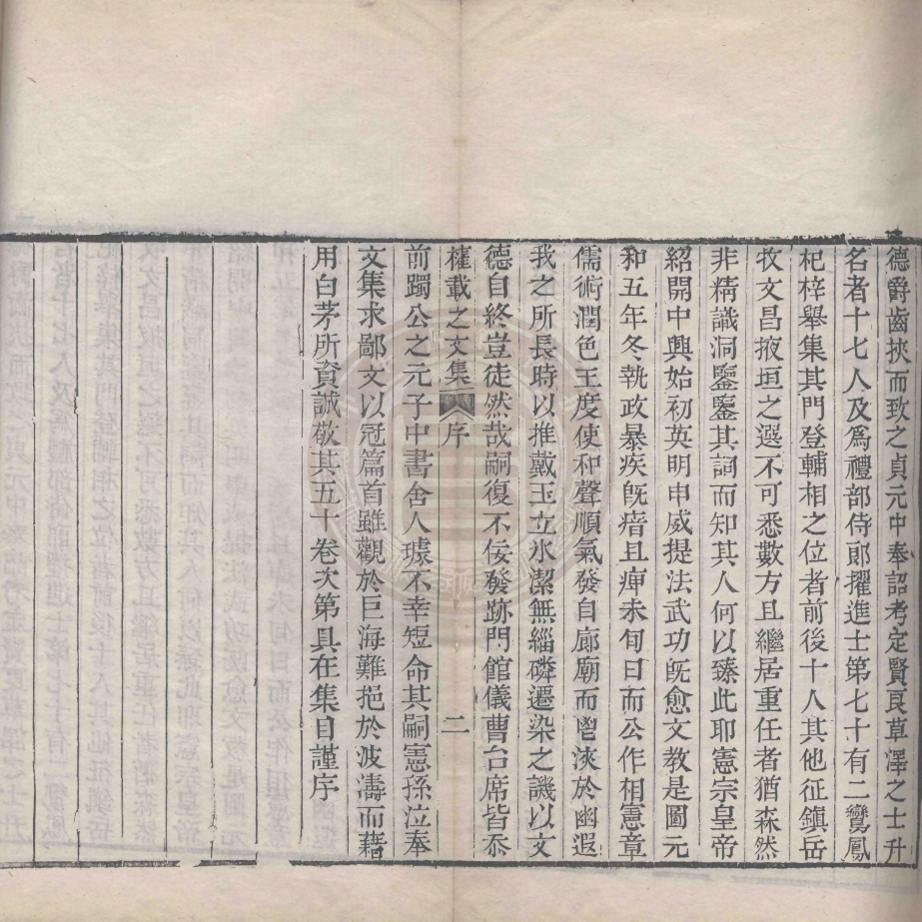 德爵齒挾而致之貞元中奉詔考定賢良草澤之士升
名者十七人及爲禮部侍郎擢進士第七十有二鸞鳳
杞梓舉集其門登輔相之位者前後十人其他征鎮岳
牧文昌掖垣之選不可悉數方且繼居重任者猶森然
非精識洞鑒鑒其詞而知其人何以臻此耶憲宗皇帝
紹開中興始初英明申威提法武功旣愈文教是圖元
和五年冬執政暴疾旣瘖且痺未旬日而公作相憲章
儒術潤色王度使和聲順氣發自廊廟而鬯浹於幽遐
我之所長時以推戴玉立氷潔無緇磷遷染之譏以文
德自終豈徒然哉嗣復不佞發跡門館儀曹台席皆忝
權載之文集 序 二
前躅公之元子中書舍人璩不幸短命其嗣憲孫泣奉
文集求鄙文以冠篇首雖觀於巨海難挹於波濤而藉
用白茅所資誠敬其五十卷次第具在集目謹序